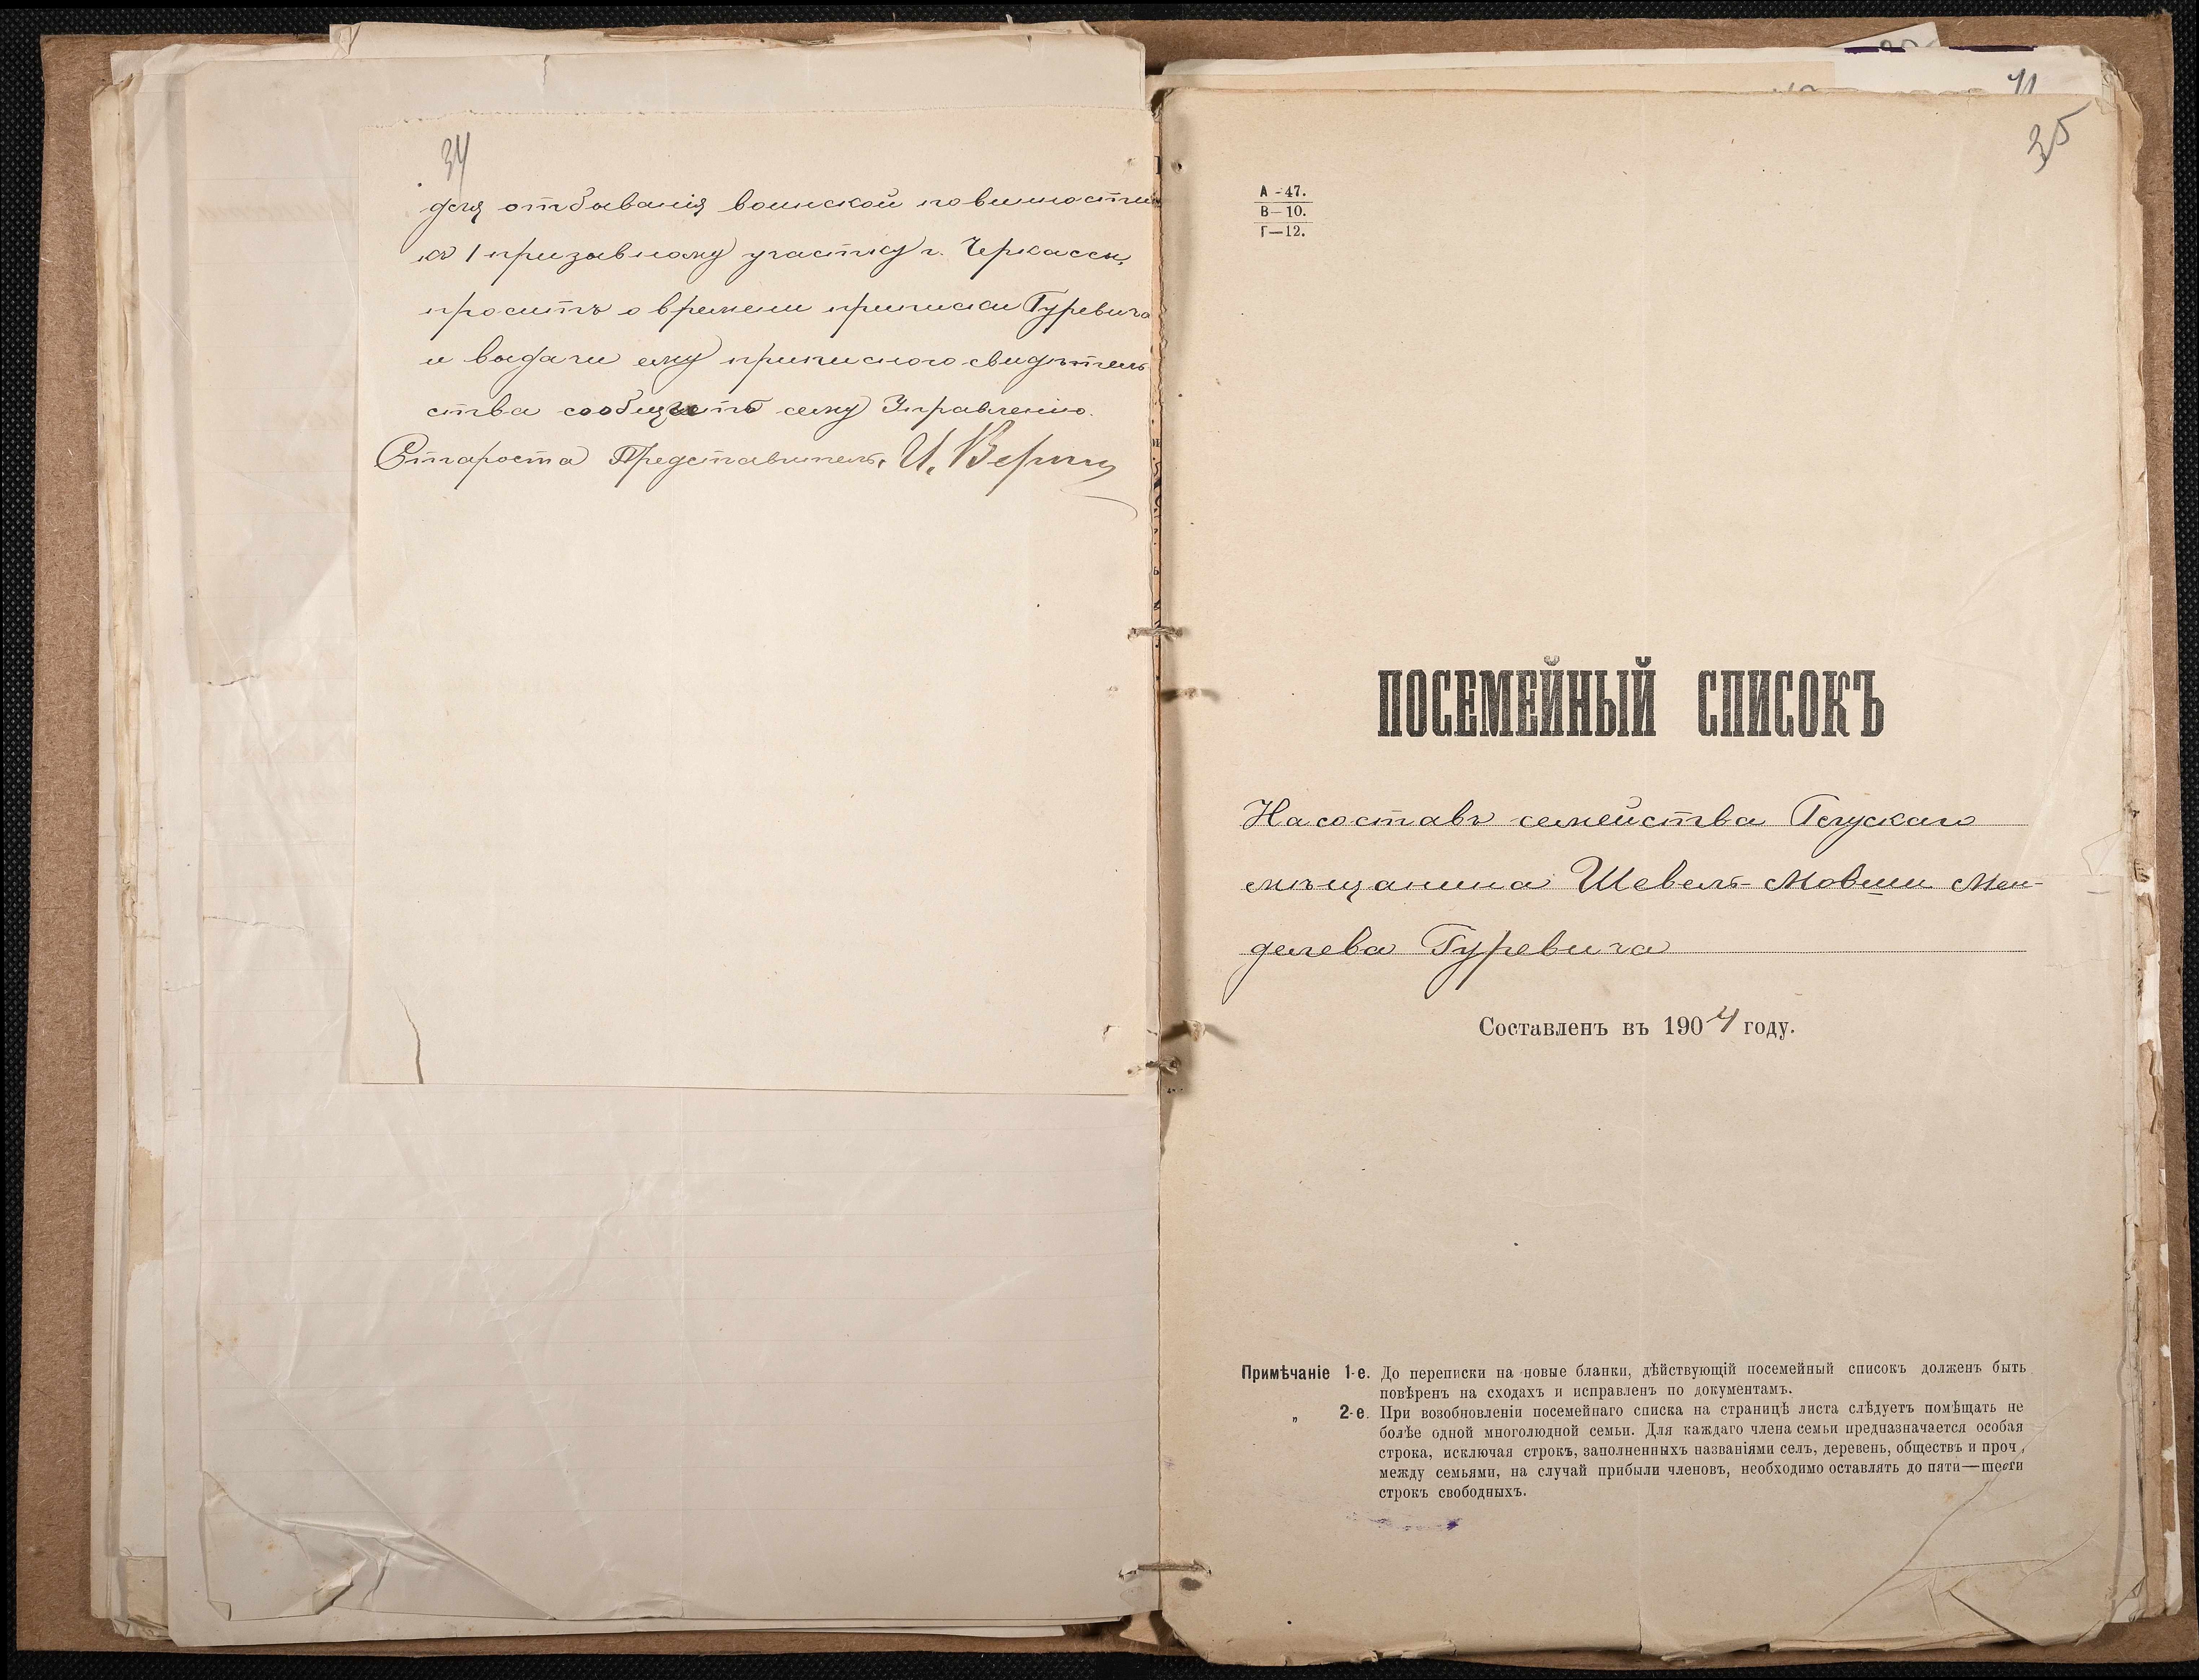 34
для отбыванія воинской повинности
къ 1 призывному участку г. Черкассы,
проситъ о времени приписки Гуревича
и выдачи ему приписного свидѣтель
ства сообщить сему Управленію.
Староста Представитель, И.
41
35
А-47.
В-10.
Г-12.
ПОСЕМЕЙНЫЙ СПИСОКЪ
На составъ семейства Глускаго
мѣщанина Шевель-Мовши Мен-
делева Гуревича
Составленъ въ 1904 году.
Примѣчаніе 1-е. До переписки на новые бланки, дѣйствующій посемейный списокъ долженъ быть
повѣренъ на сходахъ и исправленъ по документамъ.
„ 2-е. При возобновленіи посемейнаго списка на страницѣ листа слѣдуетъ помѣщать не
болѣе одной многолюдной семьи. Для каждаго члена семьи предназначается особая
строка, исключая строкъ, заполненныхъ названіями селъ, деревень, обществъ и проч.,
между семьями, на случай прибыли членовъ, необходимо оставлять до пяти—шести
строкъ свободныхъ.